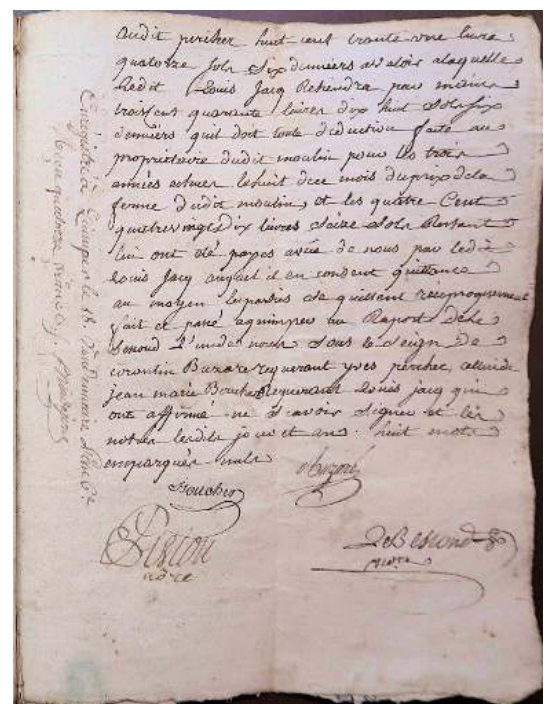 audit pericher huit cent trante une livre
quatorze sols six deniers à valoir a laquelle
ledit Louis Jacq Retiendra pour moitié
troiscent quarante livres dix huit sols six
deniers quil doit toute déduction faite au
propriétaire dudit moulin pour les trois
années echues le huit de ce mois du prix de la
ferme dudit moulin, et les quatre Cent
quatrevingt dix livres seize sols Restant
lui ont été payés avue de nous par ledit
Louis Jacq auquel il en consent quittance
au moyen les parties se quittent réciproquement
fait et passé a quimper au Raport de le
Besnond l'un de nous sous le seign de
corentin Buzaré requerant yves pericher, celui de
jean marie Boucher Requerant Louis jacq qui
ont affirmé ne sçavoir signer et les
notres lesdits jour et an. huit mots
emparqués nuls
Boucher
Buzaré
nore
Le Besnond
Enregistré à Quimper le 18 Vendemiaire l'an 6e